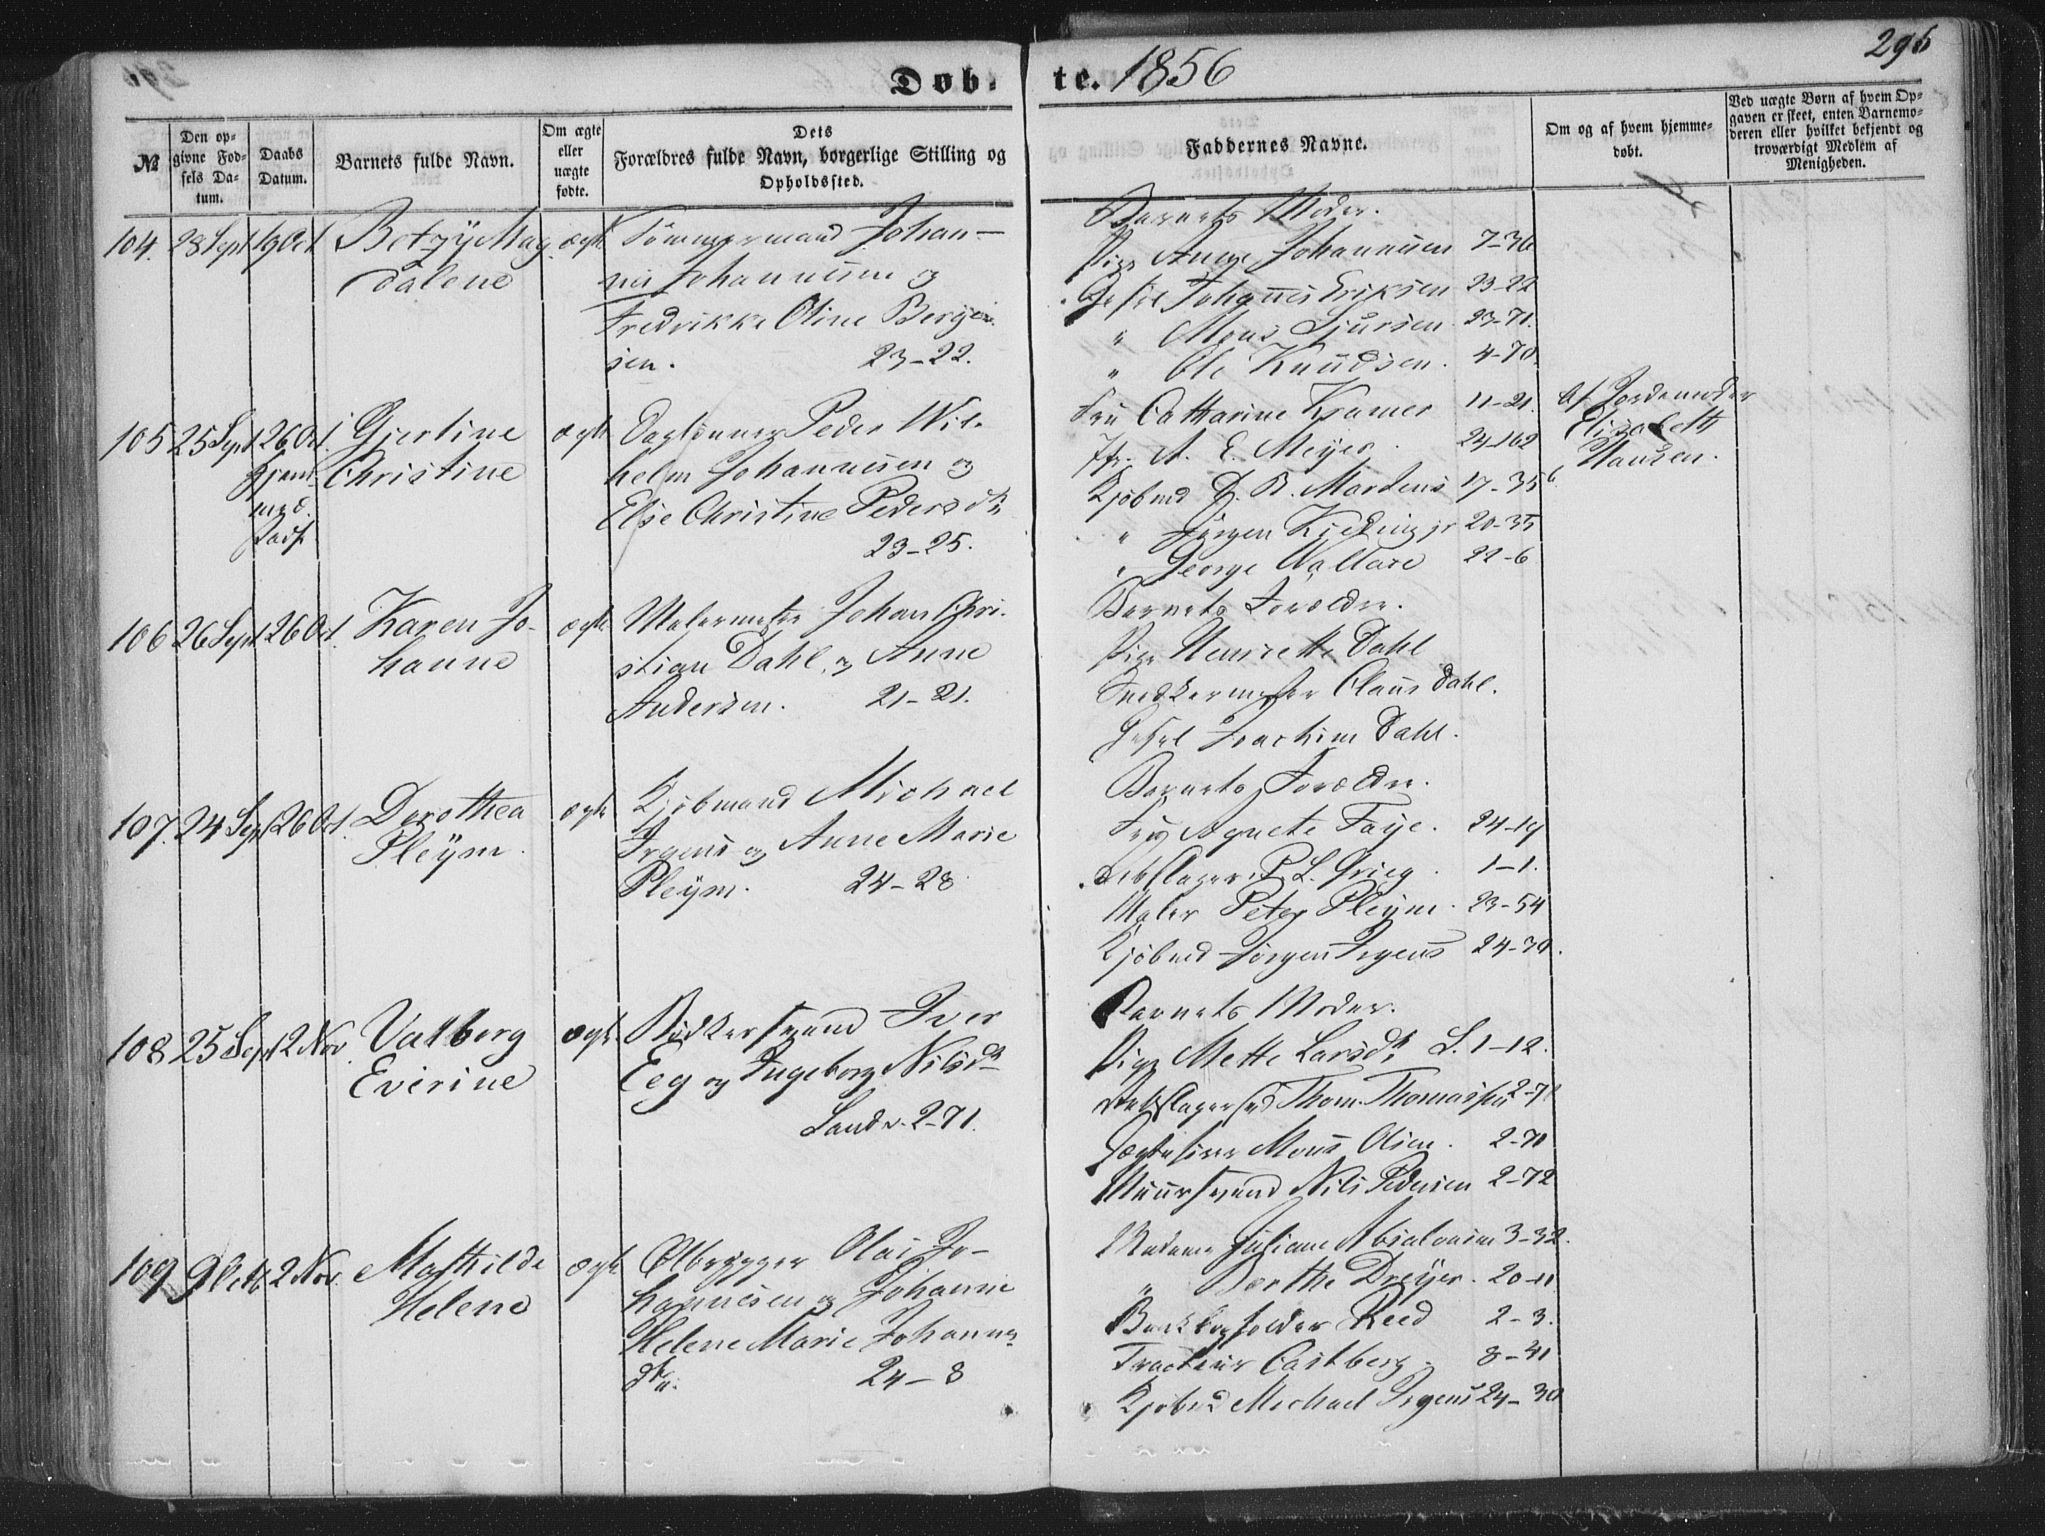 295
Døb- te. 1856
№
Den op-
givne Fød-
sels Da-
tum.
Daabs
Datum.
Barnets fulde Navn.
Om ægte
eller
uægte
fødte.
Dets
Forældres fulde Navn, borgerlige Stilling og
Opholdssted.
Faddernes Navne.
Om og af hvem hjemme-
døbt.
Ved uægte Børn af hvem Op-
gaven er skeet, enten Barnemo-
deren eller hvilket bekjendt og
troværdigt Medlem af
Menigheden.
104. 28 Sept 19 Oct Betzy Mag
dalene
ægte
Tømmermand Johan-
nes Johannesen og
Fredrikke Oline Berge
sen. 23-22.
Barnets Moder.
Pige Anne Johannesen 7-36
Johannes Eriksen 23-22
" Mons Sjursen 23-71.
" Ole Knudsen. 4-70.
105 25 Sept 26 Oct. Gjertine
Christine
Hjem
med.
Daab
ægte
Daglønner Peder Wil-
helm Johannesen og
Else Christine Pedersdtr
23-25.
Fru Catharine Kramer 11-21.
Jfr. A. E. Meyer 24-162
Kjøbmd D. B. Martens 17-35
" Jørgen Kjeding jr 20-35
" George Wallace 22-6
Af Jordemoder
Elisabeth
Hansen.
106 26 Sept 26 Oct. Karen Jo-
hanne
ægte
Malermester Johan Chri-
stian Dahl og Anne
Andersen. 21-21.
Barnets Forældre.
Pige Henriette Dahl
Snedkermester Claus Dahl.
Joachim Dahl.
107. 24 Sept 26 Oct. Dorothea
Pleÿm.
ægte
Kjøbmand Michael
Irgens og Anne Marie
Pleÿm. 24-28
Barnets Forældre.
Fru Agnete Faye. 24-19
Rebslager P. L. Grieg. 1-1.
Maler Peter Pleÿm. 23-54
Kjøbmd Jørgen Irgens 24-30.
108 25 Sept 2 Nov Valborg
Everine
ægte
Bødkersvend Iver
Eeg og Ingeborg Nilsdtr
Sandv. 2-71.
Barnets Moder.
Pige Mette Larsdtr S. 1-12.
Rebslagersvd Thom. Thomassen 2-71
Mons Olsen. 2-70
Muursvend Nils Pedersen 2-72
109 9 Octb 2 Nov. Mathilde
Helene
ægte
Ølbrygger Olai Jo-
hannesen og Johanne
Helene Marie Johannes
dtr. 24-8
Madame Juliane Absalonsen 3-32.
" Berthe Dreÿer. 20-11
Bankbogholder Reed 2-3.
Tracteur Castberg. 8-41
Kjøbmd Michael Irgens 24-30